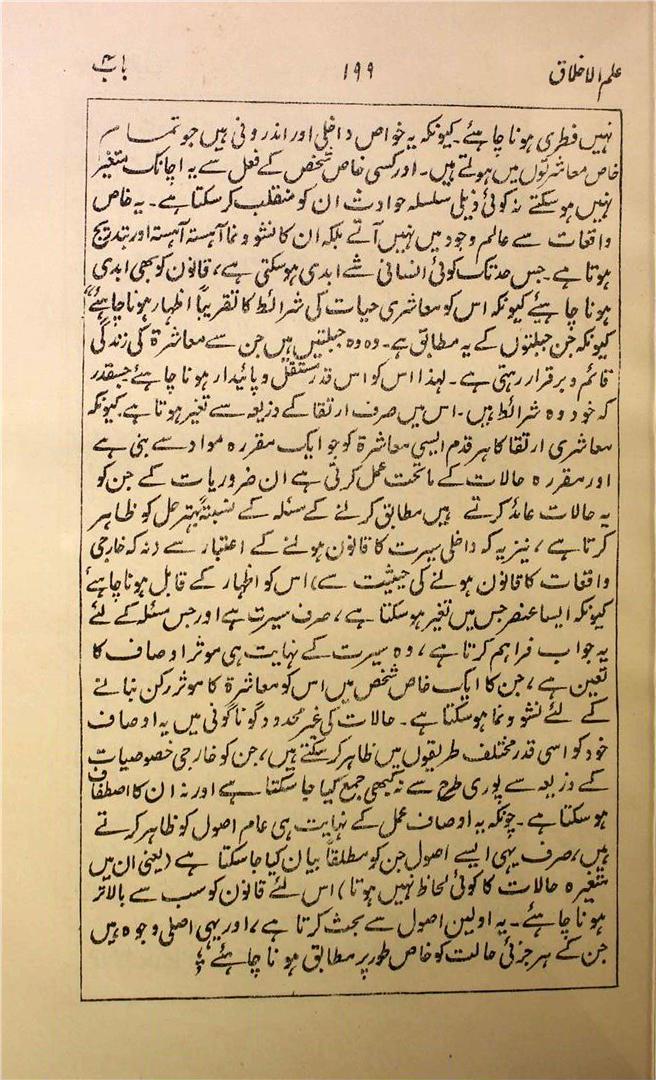 علم الاخلاق ۱۹۹ باب ۴
نہیں فطری ہونا چاہئے۔ کیونکہ یہ خواص داخلی اور اندرونی ہیں جو تمام
خاص معاشرتوں میں ہوتے ہیں۔ اور کسی خاص شخص کے فعل سے یہ اچانک متغیر
نہیں ہو سکتے نہ کوئی ذیلی سلسلہ حوادث ان کو منقلب کر سکتا ہے۔ یہ خاص
واقعات سے عالم وجود میں نہیں آتے بلکہ ان کا نشو و نما آہستہ آہستہ اور بتدریج
ہوتا ہے۔ جس حد تک کوئی انسانی شے ابدی ہو سکتی ہے، قانون کو بھی ابدی
ہونا چاہیئے کیونکہ اس کو معاشری حیات کی شرائط کا تقریباً اظہار ہونا چاہئے"
کیونکہ جن جبلتوں کے یہ مطابق ہے۔ وہ وہ جبلتیں ہیں جن سے معاشرۃ کی زندگی
قائم و برقرار رہتی ہے۔ لہذا اس کو اس قدر مستقل و پائیدار ہونا چاہئے جسقدر
کہ خود وہ شرائط ہیں۔ اس میں صرف ارتقا کے ذریعہ سے تغیر ہوتا ہے کیونکہ
معاشری ارتقا کا ہر قدم ایسی معاشرۃ کو جو ایک مقررہ مواد سے بنی ہے
اور مقررہ حالات کے ماتحت عمل کرتی ہے ان ضروریات کے جن کو
یہ حالات عائد کرتے ہیں مطابق کرنے کے مسئلہ کے نسبتہً بہتر حل کو ظاہر
کرتا ہے، نیز یہ کہ داخلی سیرت کا قانون ہونے کے اعتبار سے (نہ کہ خارجی
واقعات کا قانون ہونے کی حیثیت سے) اس کو اظہار کے قابل ہونا چاہئے
کیونکہ ایسا عنصر جس میں تغیر ہو سکتا ہے، صرف سیرت ہے اور جس مسئلہ کے لئے
یہ جواب فراہم کرتا ہے، وہ سیرت کے نہایت ہی موثر اوصاف کا
تعین ہے، جن کا ایک خاص شخص میں اس کو معاشرۃ کا موثر رکن بنانے
کے لئے نشو و نما ہو سکتا ہے۔ حالات کی غیر محدود گوناگونی میں یہ اوصاف
خود کو اسی قدر مختلف طریقوں میں ظاہر کر سکتے ہیں، جن کو خارجی خصوصیات
کے ذریعہ سے پوری طرح سے نہ کبھی جمع کیا جا سکتا ہے اور نہ ان کا اصطفاف
ہو سکتا ہے۔ چونکہ یہ اوصاف عمل کے نہایت ہی عام اصول کو ظاہر کرتے
ہیں، صرف یہی ایسے اصول جن کو مطلقاً بیان کیا جا سکتا ہے (یعنی ان میں
متغیرہ حالات کا کوئی لحاظ نہیں ہوتا) اس لئے قانون کو سب سے بالاتر
ہونا چاہئے۔ یہ اولین اصول سے بحث کرتا ہے، اور یہی اصلی وجوہ ہیں
جن کے ہر جزئی حالت کو خاص طور پر مطابق ہونا چاہئے؛